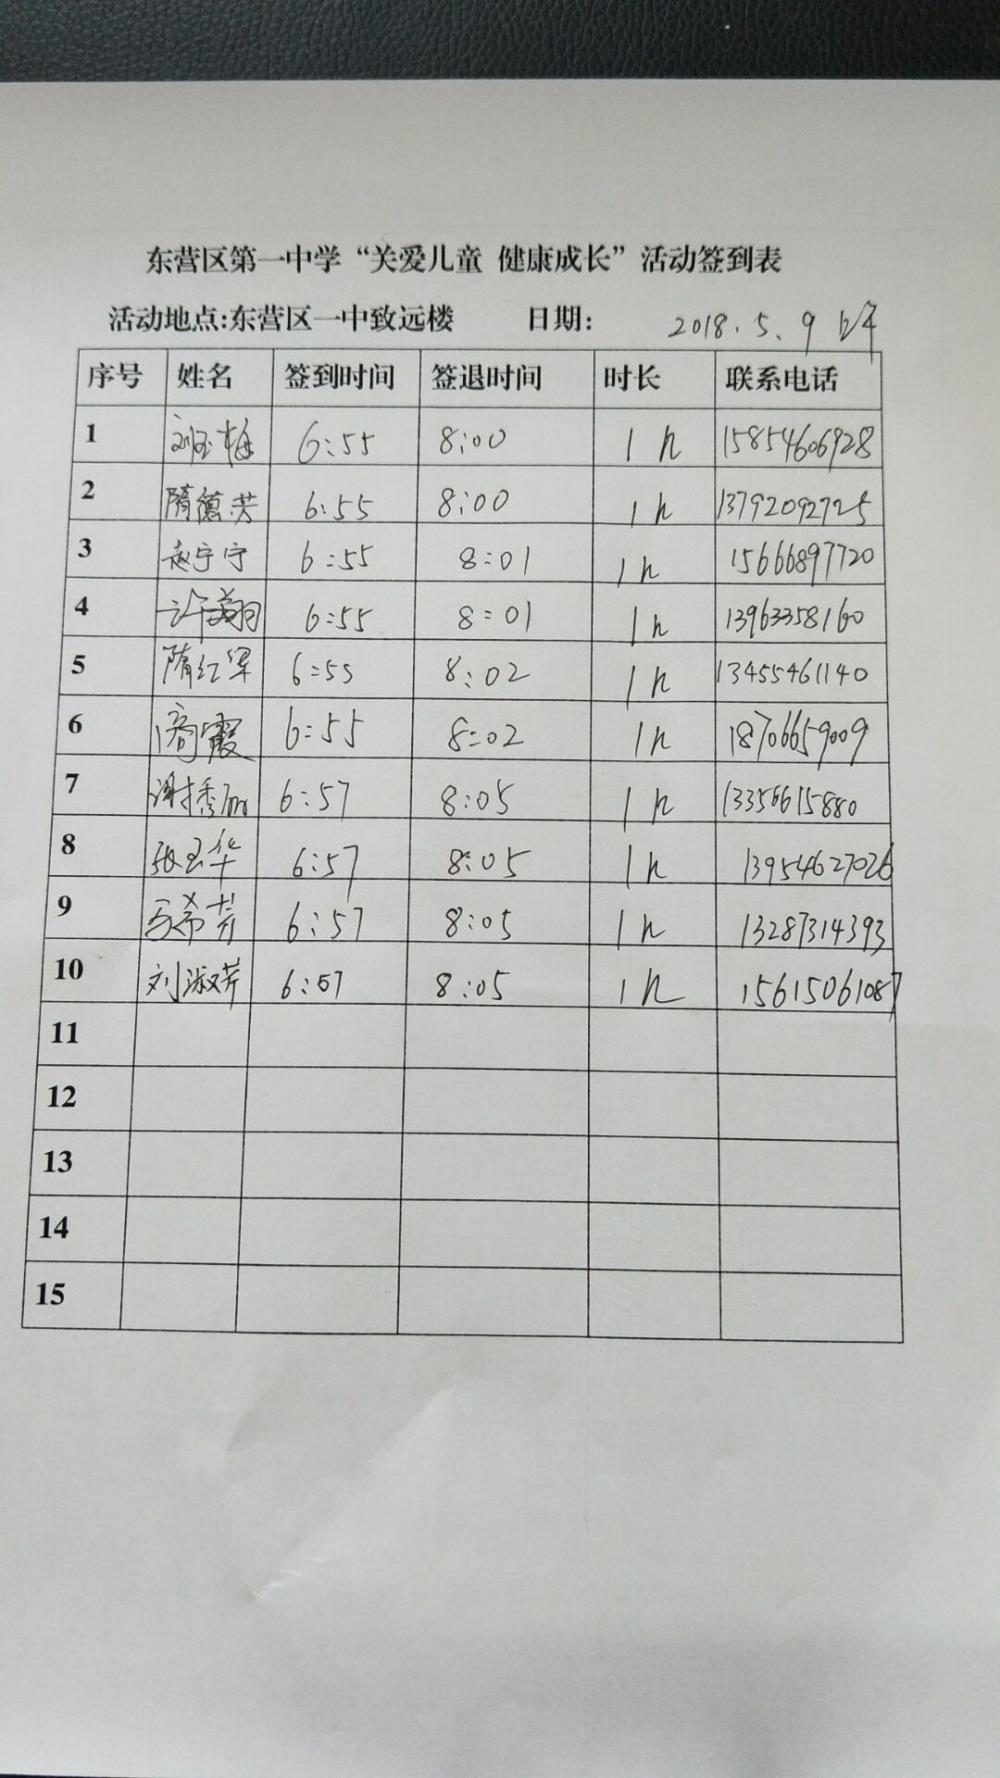 东营区第一中学“关爱儿童 健康成长”活动签到表
活动地点:东营区一中致远楼 日期: 2018.5.9 上午
序号 姓名 签到时间 签退时间 时长 联系电话
1 刘玉梅 6:55 8:00 1h 15854606928
2 隋德芳 6:55 8:00 1h 13792092725
3 赵宁宁 6:55 8:01 1h 15666897720
4 许翔 6:55 8:01 1h 13963358160
5 隋红军 6:55 8:02 1h 13455461140
6 商霞 6:55 8:02 1h 18706659009
7 谢秀丽 6:57 8:05 1h 13356615880
8 张玉华 6:57 8:05 1h 13954627026
9 王希芳 6:57 8:05 1h 13287314393
10 刘淑芹 6:57 8:05 1h 15615061087
11
12
13
14
15